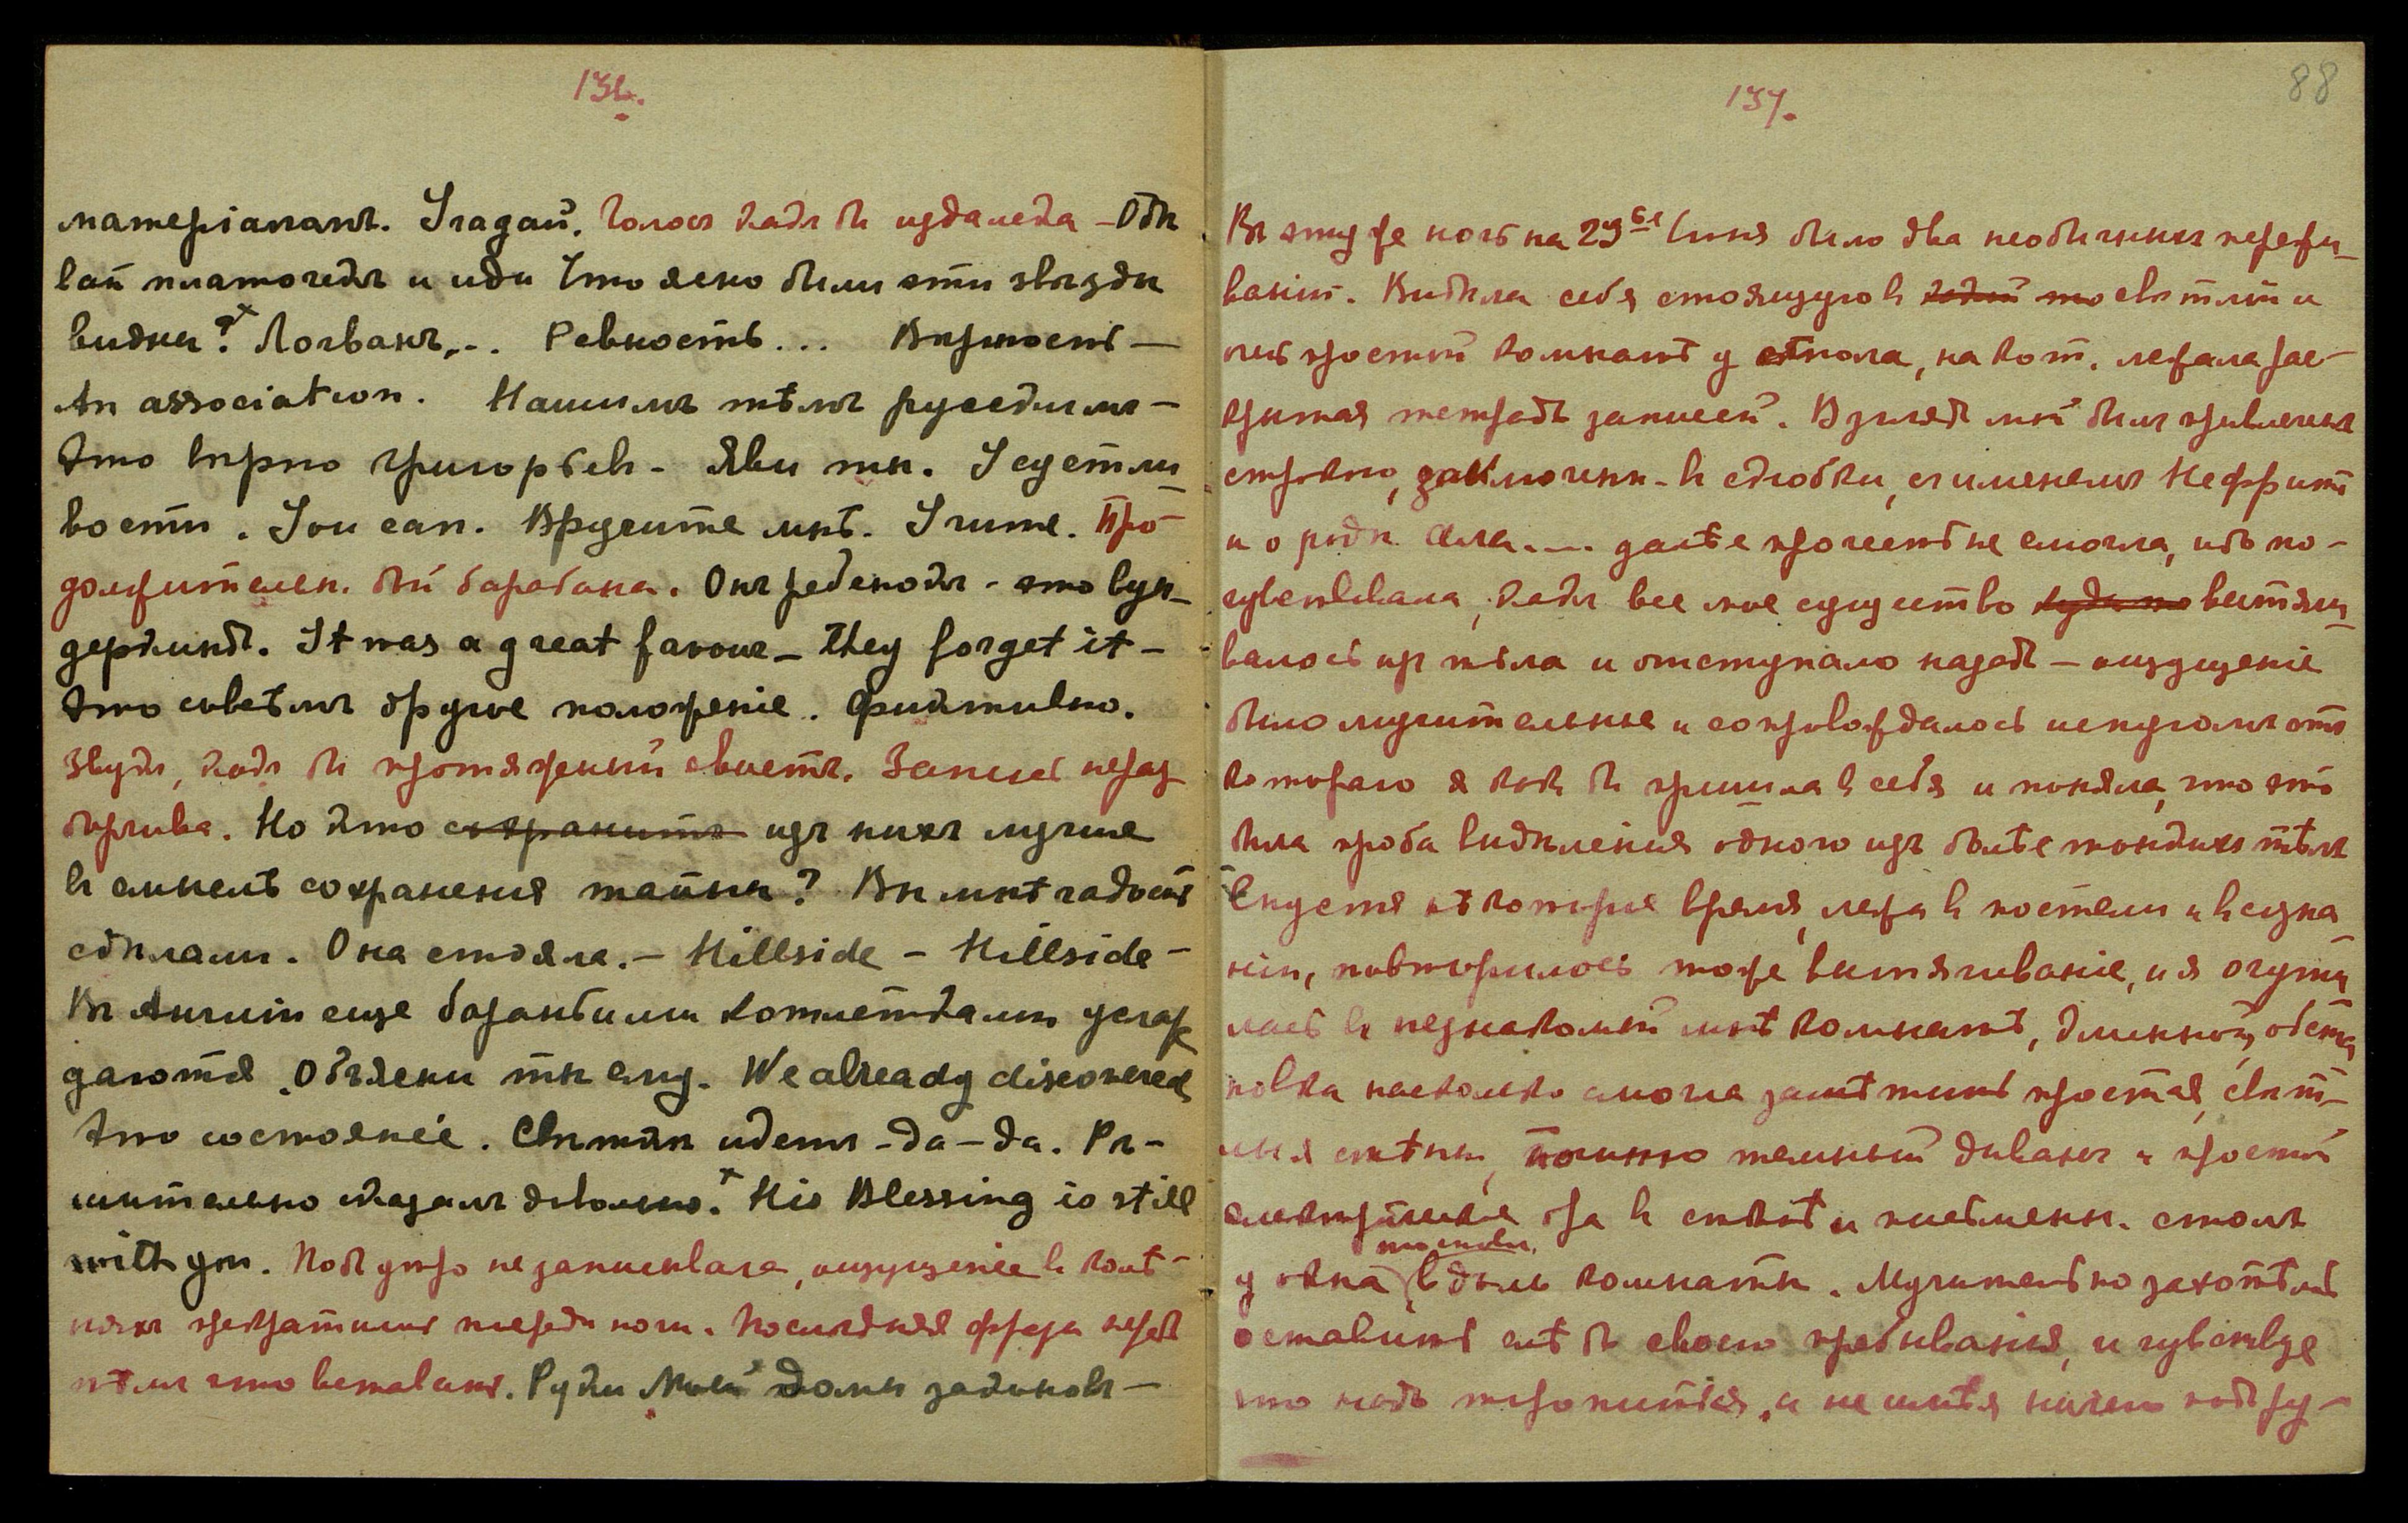 136.
матеріалами. Угадай. Голосъ какъ бы издалека – Обы
вай платочекъ и иди Что ясно были эти звѣзды
видны? Логванъ... Ревность... Вѣрность –
An association. Нашимъ тѣмъ русскимъ –
Это вѣрно Григорьевъ – Яви ты. Усустли
вости. You can. Вручите мнѣ. Учите. Про-
должительн. бой барабана. Онъ ребенокъ – это вун-
деркиндъ. It was a great favour – they forget it –
Это совсѣмъ другое положеніе. Фиктивно.
Звукъ, какъ бы протяженный свистъ. Запись нераз
борчива. Но кто сохранитъ изъ нихъ лучше
въ смыслѣ сохраненія тайны? Вы мнѣ радость
сдѣлали. Она стояла. – Hillside – Hillside –
Въ Англіи еще бараньими котлетками услаж
даются. Объясни ты ему. We already discovered
это состояніе. Святки идетъ – да – да. Рѣ-
шительно сказалъ довольно. His Blessing is still
with you. Подъ утро не записывала, ощущеніе въ колѣ-
няхъ прекратилось посреди ночи. Послѣдняя фраза передъ
тѣмъ что вставать. Руки Мои домы закинов –
137.
88
Въ эту же ночь на 29ое Іюня было два необычныхъ пережи-
ванія. Видѣла себя стоящую въ какой то свѣтлой и
очень простой комнатѣ у стола, на кот. лежала рас-
крытая тетрадь записей. Взглядъ мой былъ привлеченъ
строкою, заключенн. въ скобки, съ именемъ Неффритъ
и о родѣ .... далѣе прочесть не смогла, ибо по-
чувствовала, какъ все мое существо куда то вытяги-
валось изъ тѣла и отступало назадъ – ощущеніе
было мучительное и сопровождалось испугомъ отъ
котораго я какъ бы пришла въ себя и поняла, что это
была проба выдѣленія одного изъ болѣе тонкихъ тѣлъ
Спустя нѣкоторое время, лежа въ постели и въ созна
ніи, повторилось тоже вытягиваніе, и я очути
лась въ незнакомой мнѣ комнатѣ, длинной, обста
новка насколько смогла замѣтить простая, свѣт-
лыя стѣны, темный диванъ и простой
электрическіе бра въ стѣнѣ и письменн. столъ
поставл.
у окна вдоль комнаты. Мучительно захотѣлось
оставить слѣдъ своего пребыванія, и чувствуя
что надо торопиться, и не имѣя ничего подъ ру-